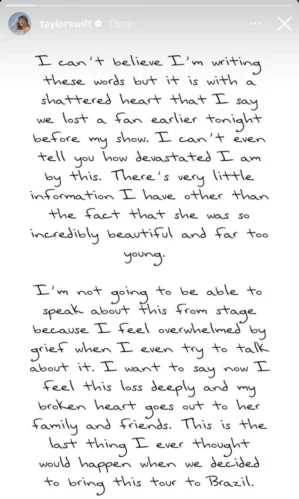 taylorswift 13m
I can't believe I'm writing
these words but it is with a
shattered heart that I say
we lost a fan earlier tonight
before my show. I can't even
tell you how devastated I am
by this. There's very little
information I have other than
the fact that she was so
incredibly beautiful and far too
young.
I'm not going to be able to
speak about this from stage
because I feel overwhelmed by
grief when I even try to talk
about it. I want to say now I
feel this loss deeply and my
broken heart goes out to her
family and friends. This is the
last thing I ever thought
would happen when we decided
to bring this tour to Brazil.